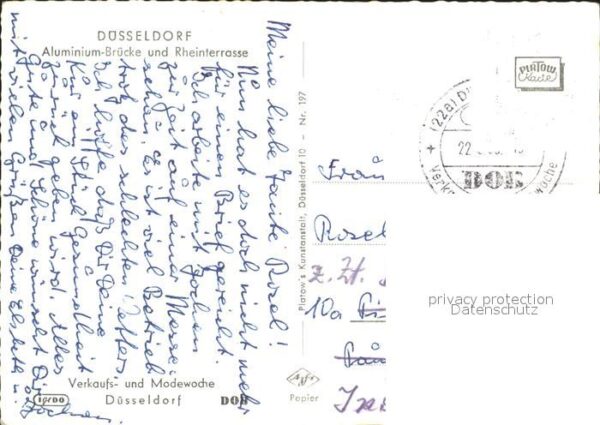 DÜSSELDORF
Aluminium-Brücke und Rheinterrasse
Meine liebe Tante Rosel!
Nun hat es doch nicht mehr
für einen Brief gereicht.
Ich arbeite mit Jochen
zur Zeit auf einer Messe
schön. Es ist viel Betrieb
trotz des schlechten Wetters.
Ich hoffe daß Dir Deine
Kur ein Stück Gesundheit
zurück geben wird. Alles
Gute und Schöne wünscht Dir
mit vielen Grüßen Deine Elsbeth u.
Jochen.
Verkaufs- und Modewoche
Düsseldorf
igedo
DOB
Platow's Kunstanstalt, Düsseldorf 10 - Nr. 197
Agfa
Papier
PLATOW
Karte
(22a) D
22
DOB
Verka
woche
Frau
Rosel
z. Zt.
10a
privacy protection
Datenschutz